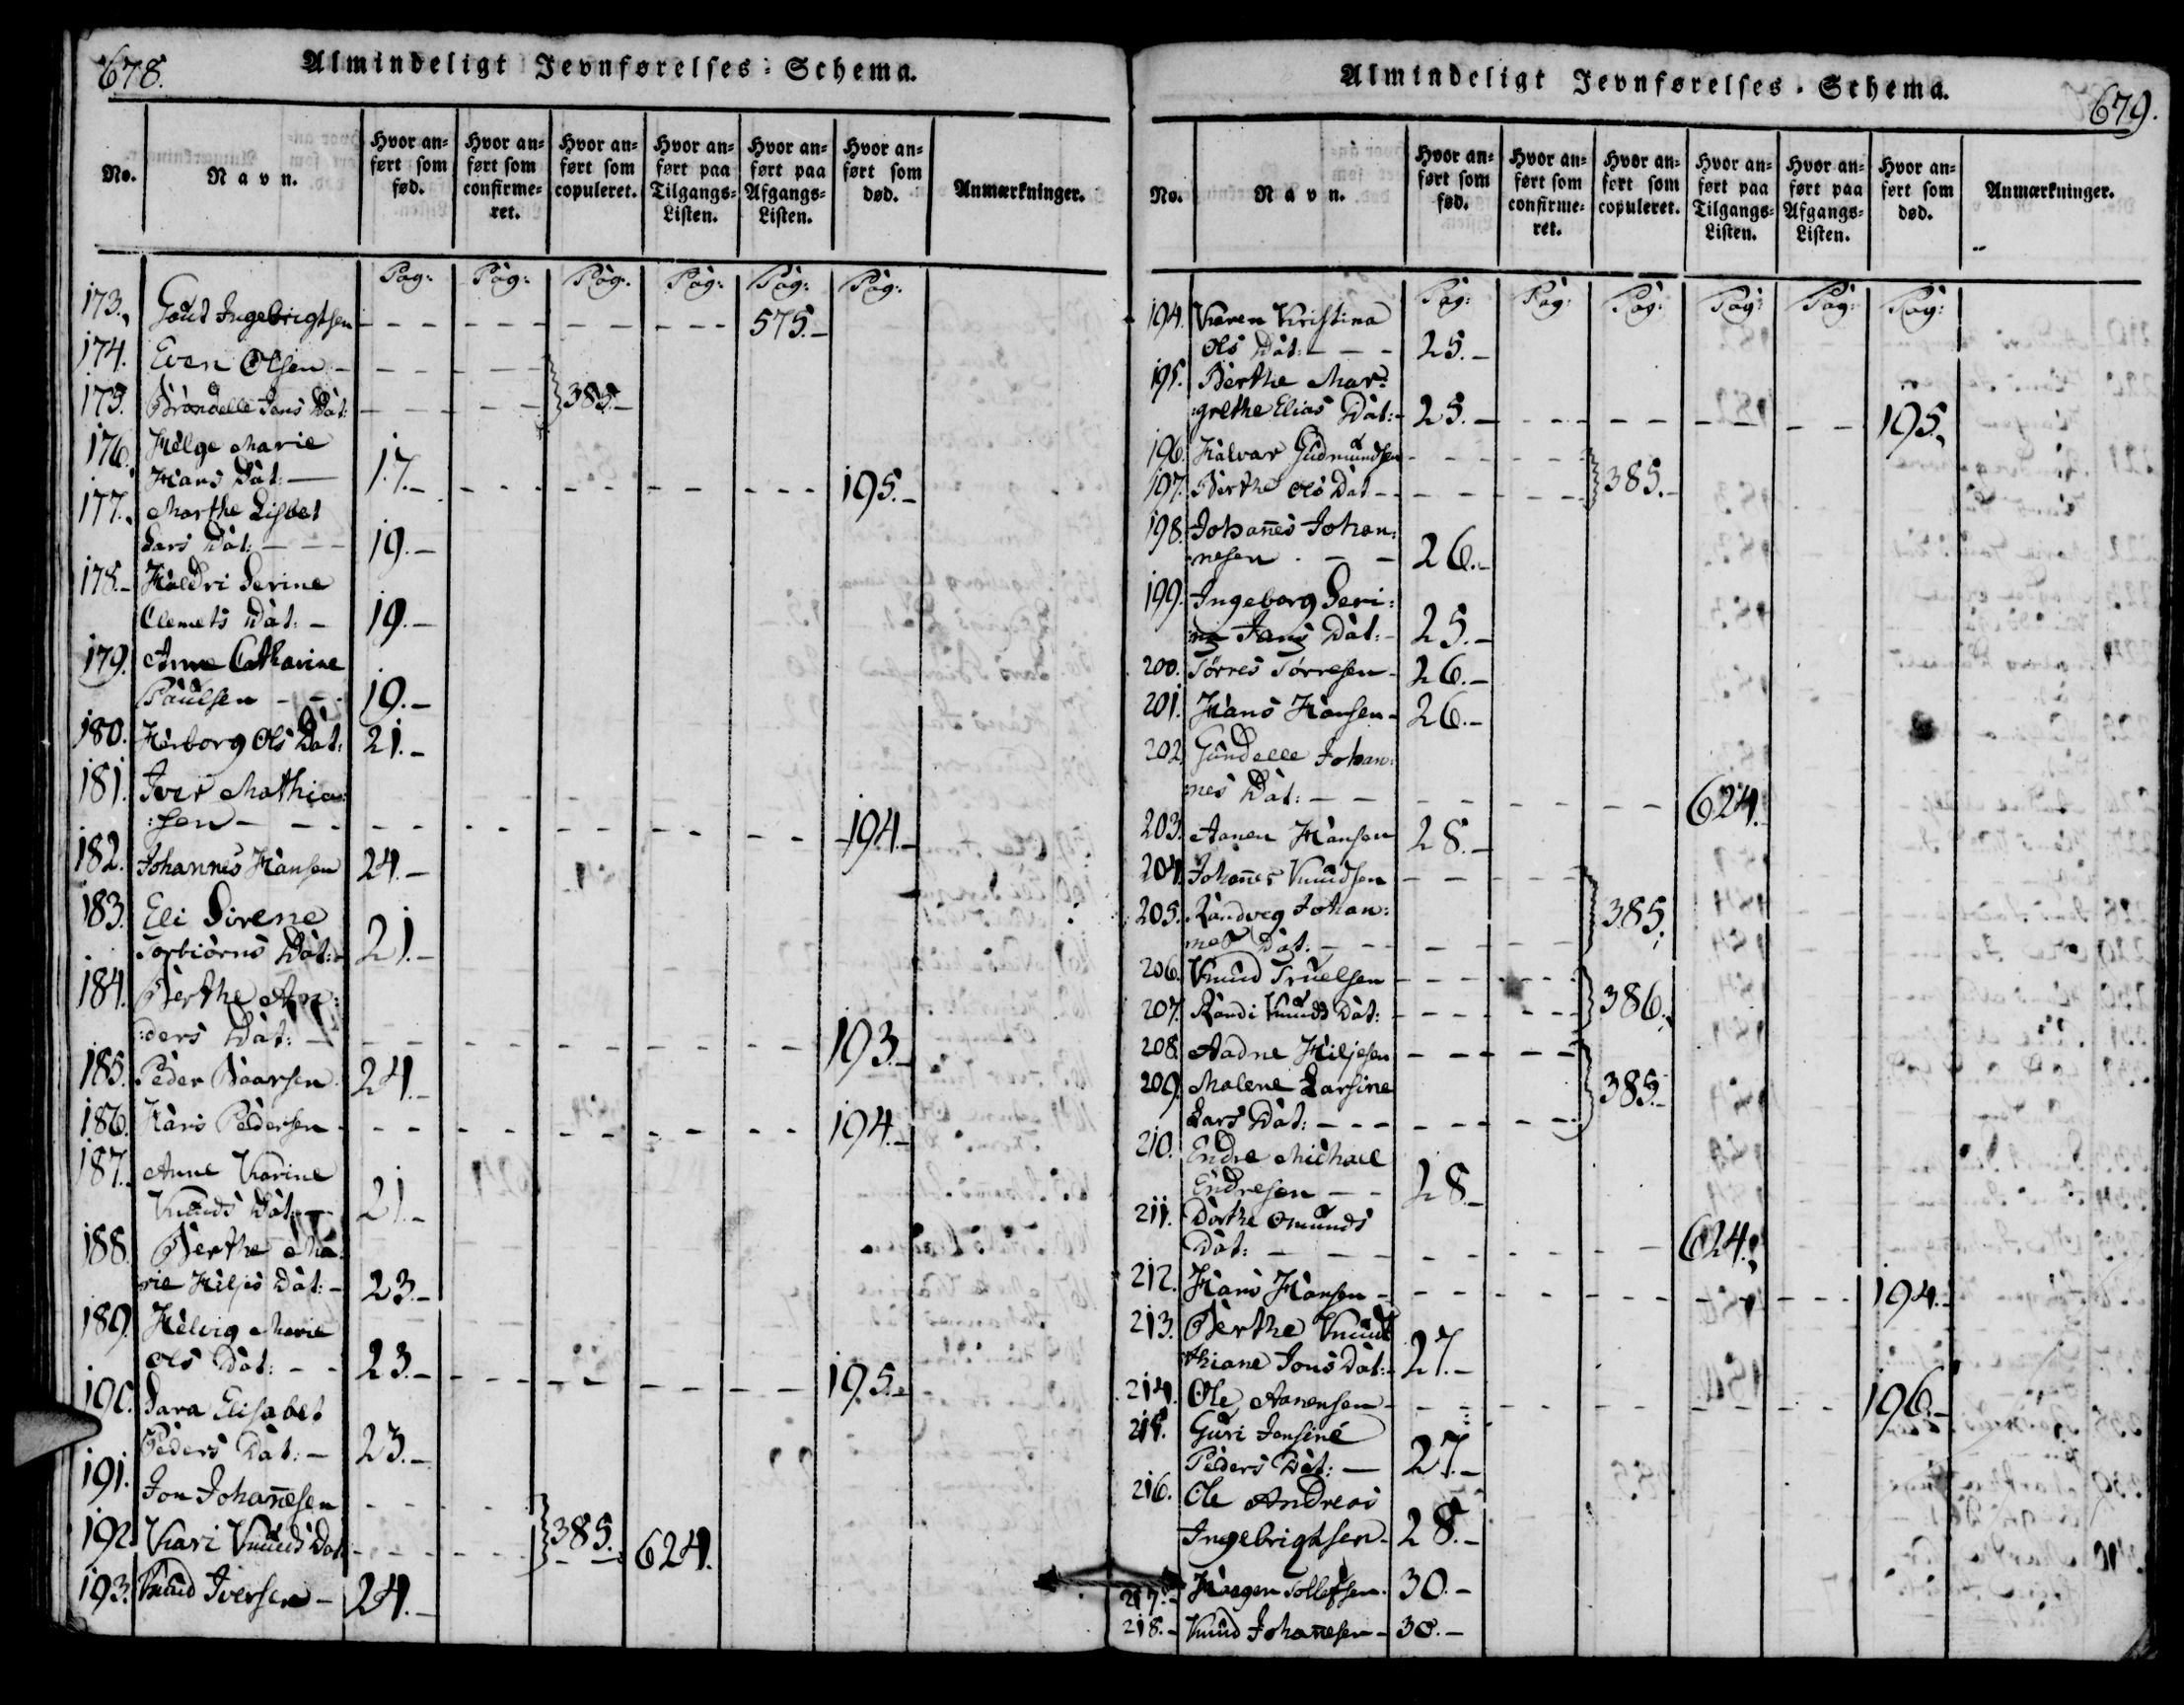 678.
Almindeligt Jevnførelses-Schema.
No.
Navn.
Hvor an-
ført som
fød.
Hvor an-
ført som
confirme-
ret.
Hvor an-
ført som
copuleret.
Hvor an-
ført paa
Tilgangs-
Listen.
Hvor an-
ført paa
Afgangs-
Listen.
Hvor an-
ført som
død.
Anmærkninger.
Pag: Pag: Pag. Pag: Pag: Pag:
173. Gout Ingebrigtsen - - - - 575.-
174. Even Olsen - - - -
175. Brondelle Jens Dat: - - - 385.-
176. Helge Marie
Hans Dat: — 17.- - - - 195.-
177. Marthe Lisbet
Lars Dat: — 19.-
178.- Haldri Serine
Clemets Dat: - 19.-
179. Anne Catharine
Paulsen - - 19.-
180. Herborg Ols Dat: 21.-
181. Iver Mathia:
:sen - - - - 194.-
182. Johannes Hansen 24.-
183. Eli Sirene
Torbiørns Dat: 21.-
184. Berthe An:
:ders Dat: - - - 193.-
185. Peder Baarsen 24.-
186. Hans Pedersen - - - 194.-
187. Anne Karine
Knuds Dat: - 21.-
188. Berthe Ma:
rie Kiljes Dat: - 23.-
189. Helvig Marie
Ols Dat: - - 23.- - - - 195.-
190. Sara Elisabet
Peders Dat: - 23.-
191. Jon Johañesen - - -
192. Kari Knuds Dat - - - 385. - 624.
193. Knud Iversen - 24.-
Almindeligt Jevnførelses-Schema.
679.
No.
Navn.
Hvor an-
ført som
fød.
Hvor an-
ført som
confirme-
ret.
Hvor an-
ført som
copuleret.
Hvor an-
ført paa
Tilgangs-
Listen.
Hvor an-
ført paa
Afgangs-
Listen.
Hvor an-
ført som
død.
Anmærkninger.
Pag: Pag: Pag: Pag: Pag: Pag:
194. Karen Kristina
Ols Dat: - - - 25.-
195. Berthe Mar:
:grethe Elias Dat: - 25.- - - - 195.
196. Halvar Gudmundsen - - -
197. Berthe Ols Dat - - - 385.-
198. Johañes Johan:
nesen - - 26.-
199. Ingeborg Seri:
na Jans Dat: - 25.-
200. Tørres Tørresen - 26.-
201. Hans Hansen - 26.-
202. Gundelle Johan:
nes Dat: - - - - 624.
203. Aanen Hansen 28.-
204. Johañes Knudsen - - -
205. Randveg Johan: 385.
nes Dat: - - - -
206. Knud Truelsen - - -
207. Randi Knuds Dat: - - - 386.
208. Aadne Kiljesen - - -
209. Malene Larsine 385.-
Lars Dat: - - - - -
210. Endre Michael
Endresen - - 28.-
211. Dorthe Omunds
Dat: - - - - 624.
212. Hans Hansen - - - 194.-
213. Berthe Knud
thiane Jons Dat: - 27.-
214. Ole Aanensen - - - 196.-
215. Guri Jonsine
Peders Dat: — 27.-
216. Ole Andreas
Ingebrigtsen - 28.-
217.- Haagen Tollefsen. 30.-
218.- Knud Johañesen - 30.-